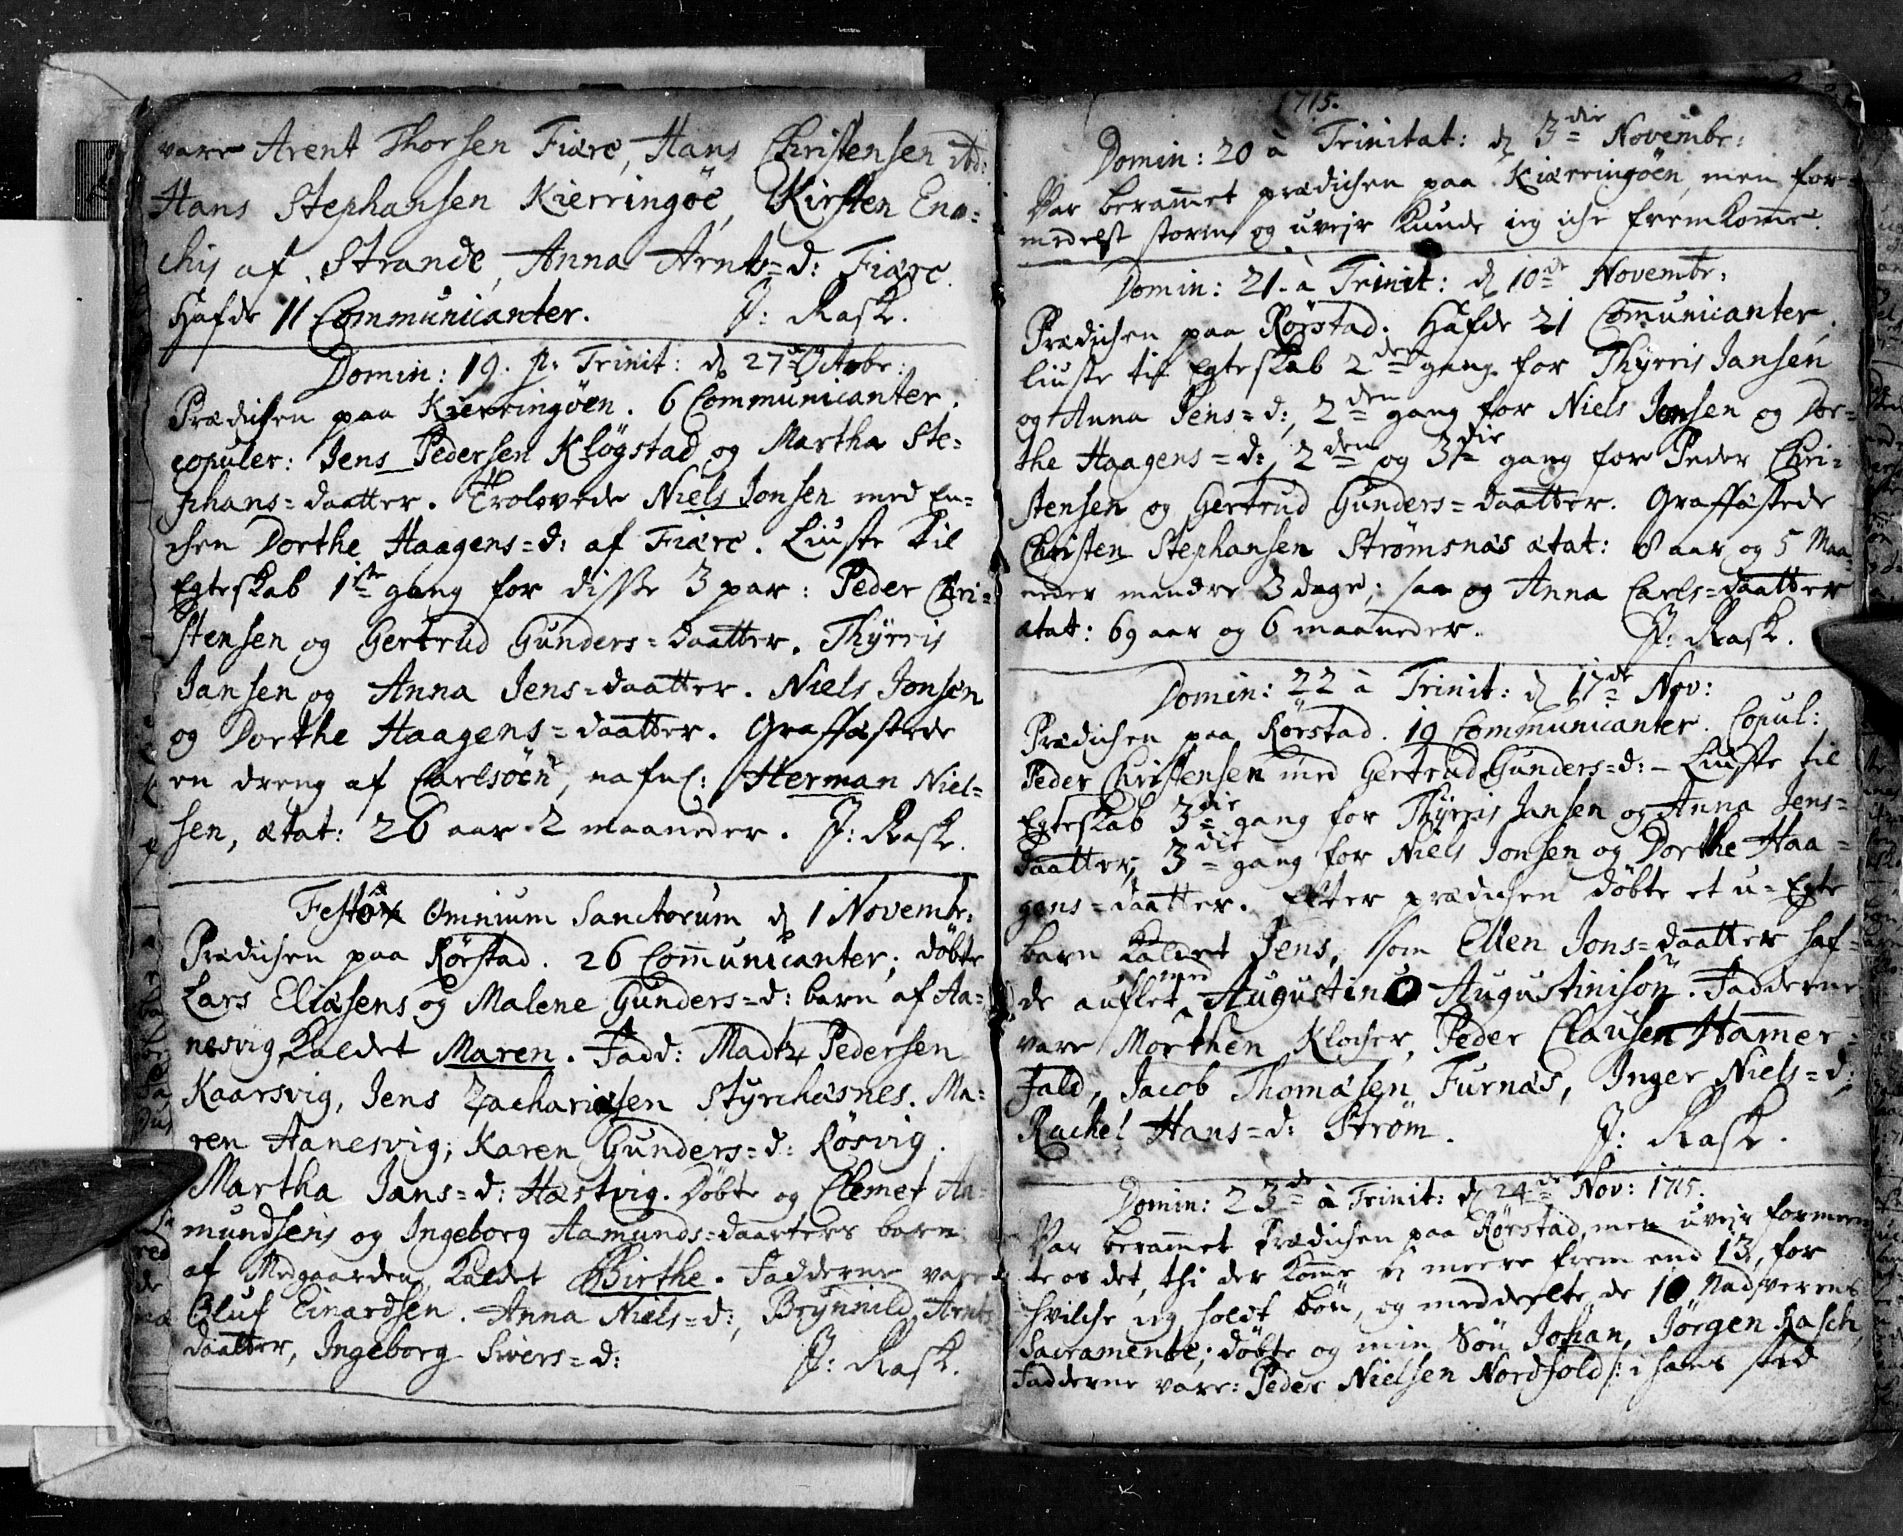 vare Arent Thorsen Fiære, Hans Christensen ibd:
Hans Stephansen Kierringöe, Kirsten Eno-
chis af Strande, Anna Arnts=d: Fiære.
Hafde 11 Communicanter. J: Rask.
Domin: 19. p. Trinit: d 27de Octobr:
Prædichen paa Kierringöen. 6 Communicanter.
copuler: Jens Pedersen Klögstad og Martha Ste-
phans=daatter. Trolovede Niels Jonsen med En-
chen Dorthe Haagens=d: af Fiære. Liuste til
Egteskab 1ste gang for disse 3 par: Peder Chri-
stensen og Gertrud Gunders=daatter. Thÿrris
Jansen og Anna Jens=daatter. Niels Jonsen
og Dorthe Haagens=daatter. Graffæstede
en dreng af Carlsöen, nafnl: Herman Niel-
sen, ætat: 26 aar 2 maaneder. J: Rask.
Festo Omnium Sanctorum d 1 Novembr:
Prædichen paa Rörstad. 26 Communicanter; döbte
Lars Eliæsens og Malene Gunders=d: barn af Aa-
nesvig kaldet Maren. Fadd: Madtz Pedersen
Kaarsvig, Jens Zachariæsen Styrchesnes. Ma-
ren Aanesvig; Karen Gunders=d: Rösvig.
Martha Jans=d: Hæstvig. Döbte og Clemet Aa-
mundsens og Ingeborg Aamunds=daatters barn
af Medgaarden kaldet Birthe. Fadderne vare
Oluf Einardsen. Anna Niels=d:, Brynnild Arnts
daatter, Ingeborg Sivers=d: J: Rask.
1715.
Domin: 20 à Trinitat: d 3die Novembr:
Var beramet prædichen paa Kiærringöen, men for-
medelst storm og uvejr kunde ieg iche fremkomme.
Domin: 21. à Trinit: d 10de Novembr:
Prædichen paa Rörstad. Hafde 21 Communicanter.
liuste til Egteskab 2den gang for Thÿrris Jansen
og Anna Jens=d:, 2den gang for Niels Jonsen og Dor-
the Haagens=d:, 2den og 3die gang for Peder Chri-
stensen og Gertrud Gunders=daatter. Graffæstede
Christen Stephansen Strömsnæs ætat: 8 aar og 5 Maa-
neder mindre 3 dage; saa og Anna Carls=daatter
ætat: 69 aar og 6 maaneder. J: Rask.
Domin: 22 à Trinit: d 17de Nov:
Prædichen paa Rörstad. 19 Communicanter. Copul:
Peder Christensen med Gertrud Gunders=d: - Liuste til
Egteskab 3die gang for Thÿrris Jansen og Anna Jens=
daatter, 3die gang for Niels Jonsen og Dorthe Haa-
gens=daatter. Efter prædichen döbte et u=Egte
barn kaldet Jens, som Ellen Jons=daatter haf-
de auflet med Augustinus Augustinisön. Fadderne
vare Morthen Klocher, Peder Clausen Hammer-
fald, Jacob Thomæsen Furnæs, Inger Niels=d:
Rachel Hans=d: Ström. J: Rask.
Domin: 23de à Trinit: d 24de Nov: 1715.
Var beramet Prædichen paa Rörstad, men uvejr formeen
te os det, thi der komme ej meere frem end 13, for
hvilche ieg holdt bön, og meddeelte de 10 Nadverens
Sacramente; döbte og min Sön Johan Jörgen Rasch,
Fadderne vare: Peder Nielsen Nordfold /: i hans sted